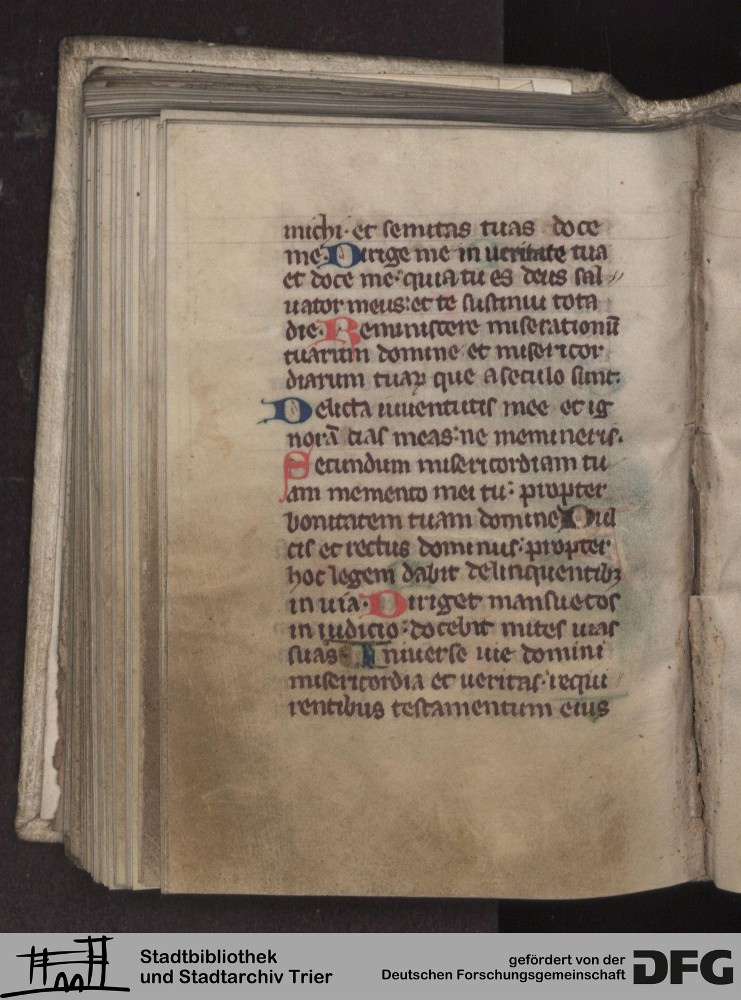 michi· et semitas tuas doce
me Dirige me in ueritate tua
et doce me· quia tu es deus sal〃
uator meus: et te sustinui tota
die· Reminiscere miserationū
tuarum domine et misericor
diarum tuaꝝ que a seculo sunt:
Delicta iuuentutis mee et ig
norā cias meas: ne memineris·
Secundum misericordiam tu
am memento mei tu: propter
bonitatem tuam domine Dul
cis et rectus dominus: propter
hoc legem dabit delinquentibꝫ
in uia· Diriget mansuetos
in iudicio: docebit mites uias
suas· Uniuerse uie domini
misericordia et ueritas· requi〃
rentibus testamentum eius
Stadtbibliothek
und Stadtarchiv Trier
gefördert von der
Deutschen Forschungsgemeinschaft
DFG